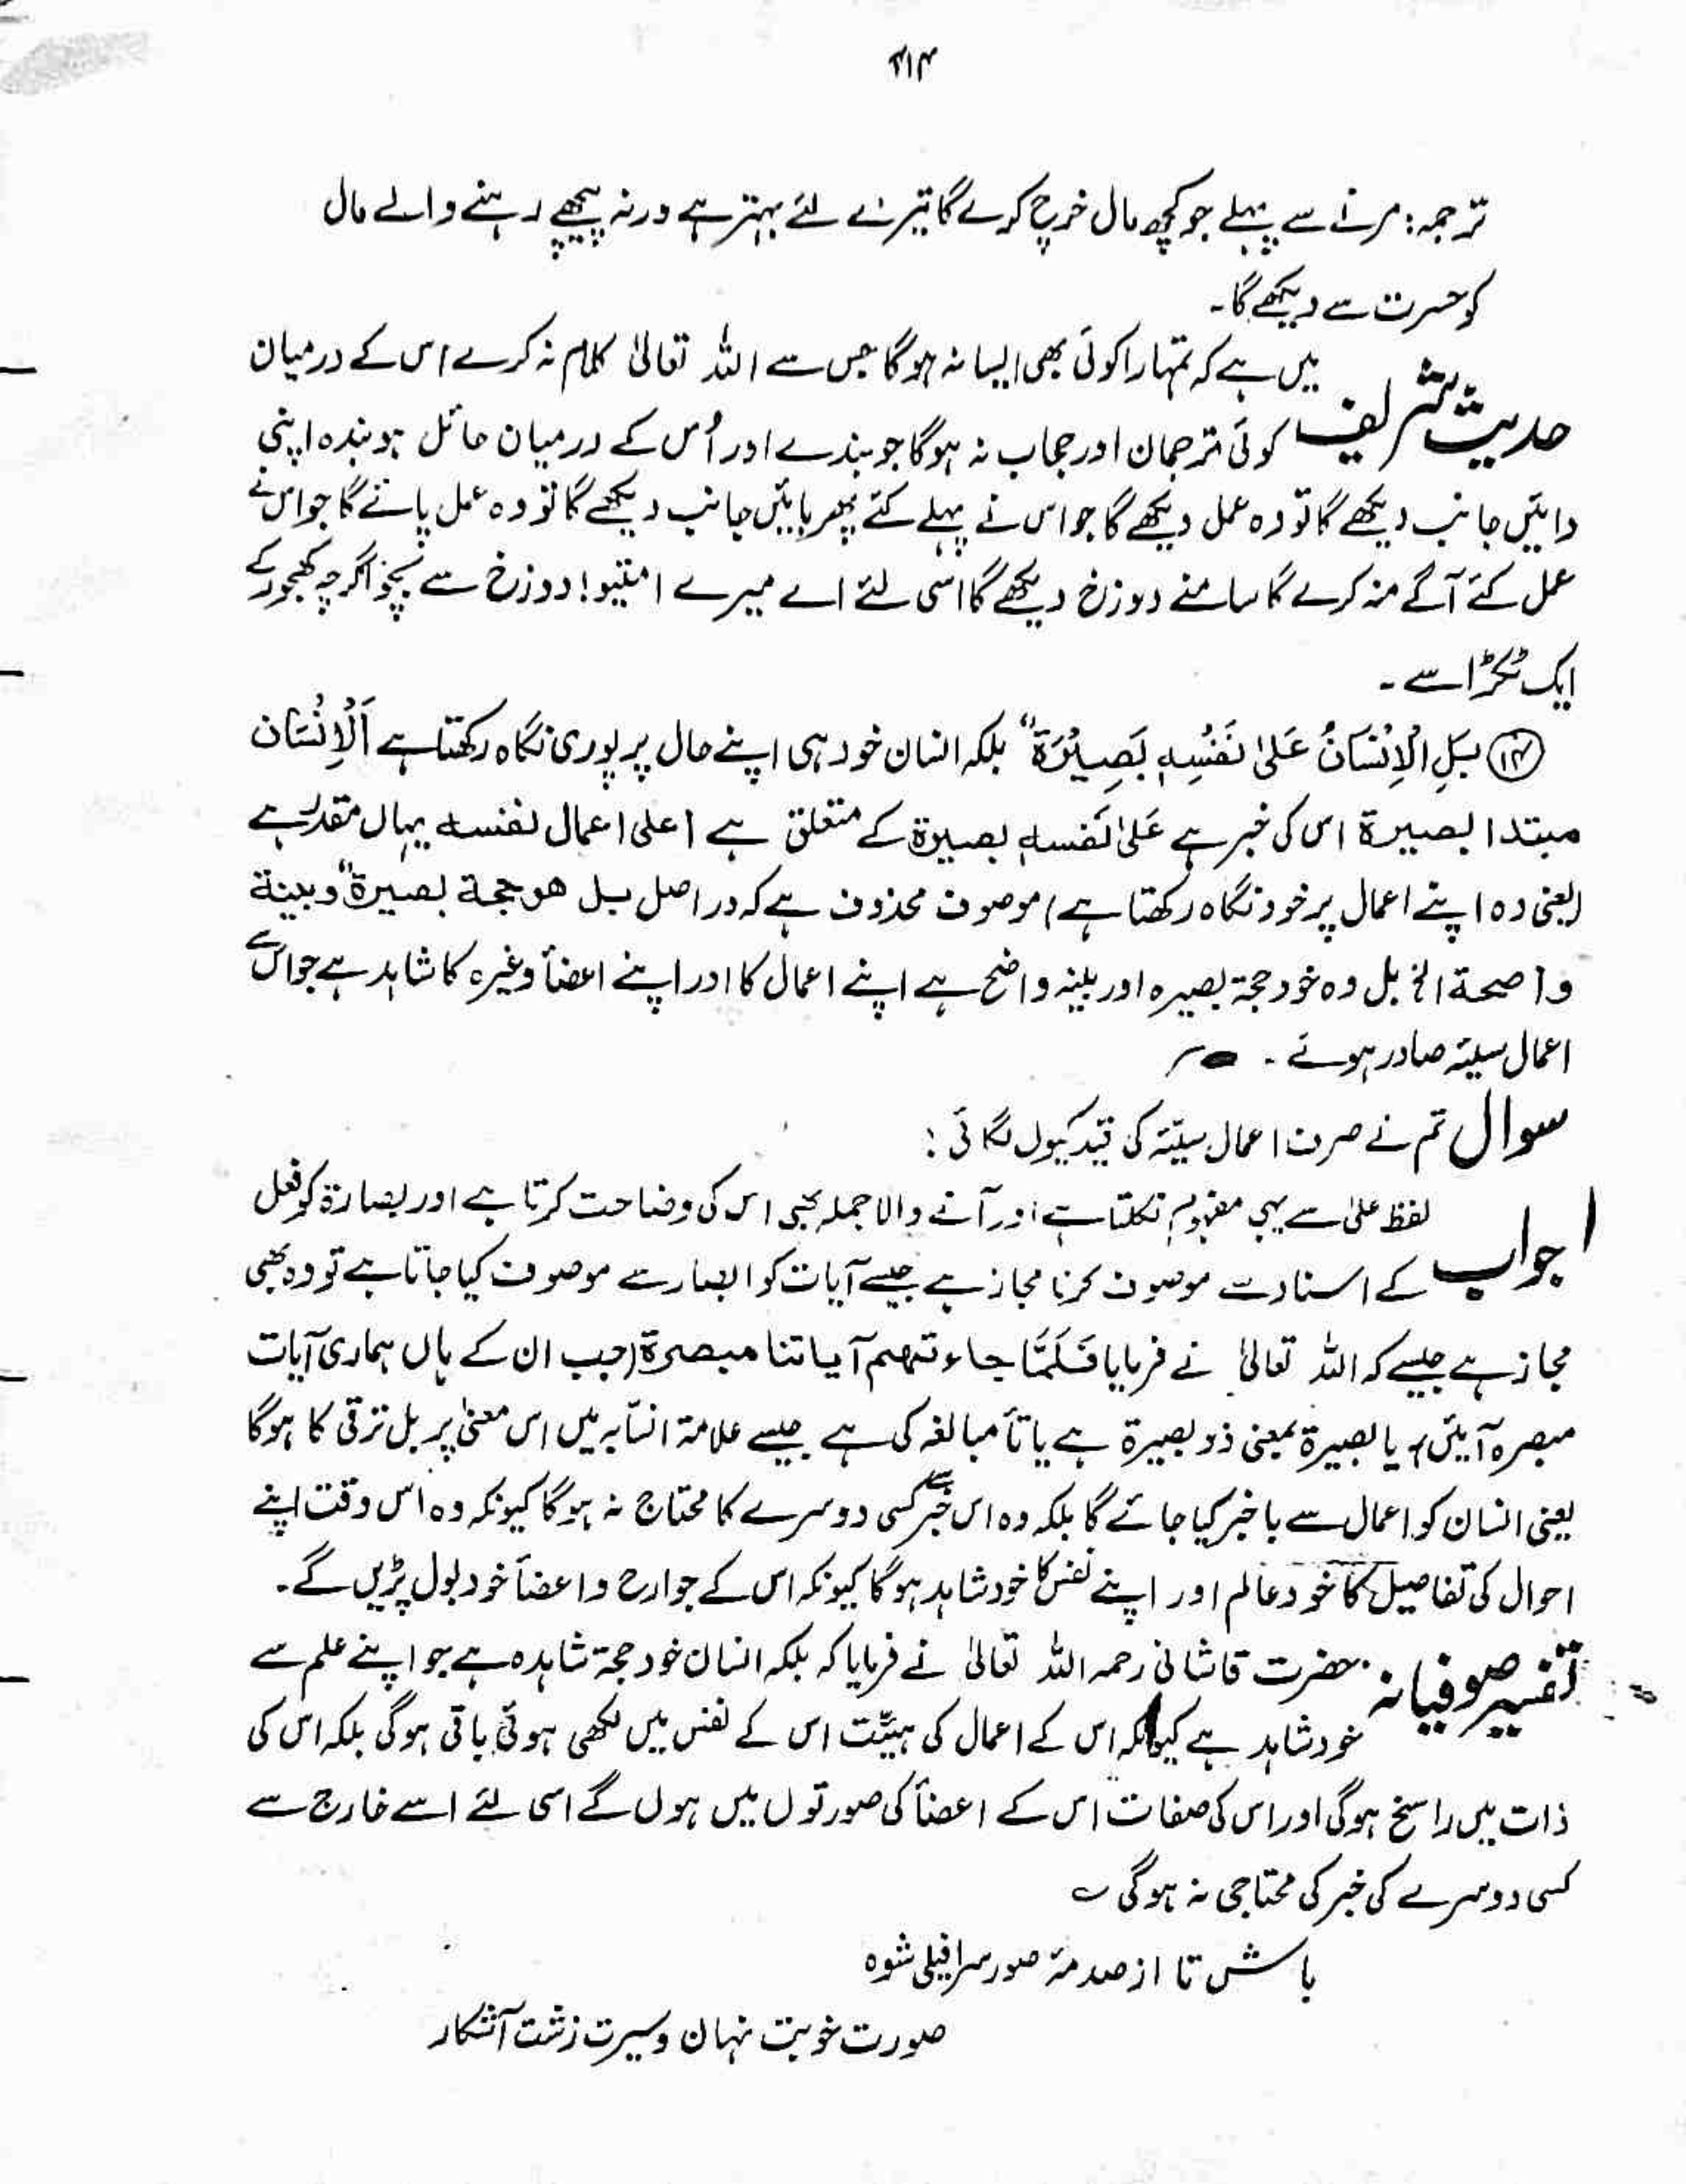 ۳۱۴
ترجمہ: مرنے سے پہلے جو کچھ مال خرچ کرے گا تیرے لئے بہتر ہے ورنہ پیچھے رہنے والے مال
کو حسرت سے دیکھے گا۔
حدیث شریف میں ہے کہ تمہارا کوئی بھی ایسا نہ ہوگا جس سے اللہ تعالیٰ کلام نہ کرے اس کے درمیان
کوئی ترجمان اور حجاب نہ ہوگا جو بندے اور اُس کے درمیان حائل ہو بندہ اپنی
دائیں جانب دیکھے گا تو وہ عمل دیکھے گا جو اس نے پہلے کئے پھر بائیں جانب دیکھے گا تو وہ عمل پائے گا جو اس نے
عمل کئے آگے منہ کرے گا سامنے دوزخ دیکھے گا اسی لئے اے میرے امتیو! دوزخ سے بچو اگرچہ کھجور کے
ایک ٹکڑا سے ۔
⑭ بَلِ الْاِنْسَانُ عَلیٰ نَفْسِہٖ بَصِیْرَۃٌ" بلکہ انسان خود ہی اپنے حال پر پوری نگاہ رکھتا ہے اَلْاِنْسَان
مبتدا بصیرۃ اس کی خبر ہے عَلیٰ نَفسہٖ بصیرۃ کے متعلق ہے (علی اعمال نفسہ یہاں مقدر ہے
(یعنی وہ اپنے اعمال پر خود نگاہ رکھتا ہے) موصوف محذوف ہے کہ دراصل بل ھو حجۃ بصیرۃ" و بینۃ
واضحۃ الخ بل وہ خود حجۃ بصیرہ اور بینہ واضح ہے اپنے اعمال کا اور اپنے اعضأ وغیرہ کا شاہد ہے جو اس سے
اعمال سیئہ صادر ہوئے ۔
سوال تم نے صرف اعمال سیئہ کی قید کیوں لگائی :
جواب لفظ علیٰ سے یہی مفہوم نکلتا ہے اور آنے والا جملہ بھی اس کی وضاحت کرتا ہے اور بصارۃ کو فعل
کے اسناد سے موصوف کرنا مجاز ہے جیسے آیات کو ابصار سے موصوف کیا جاتا ہے تو وہ بھی
مجاز ہے جیسے کہ اللہ تعالیٰ نے فرمایا فَلَمَّا جاءتھم آیاتنا مبصرۃ (جب ان کے ہاں ہماری آیات
مبصرہ آئیں) یا بصیرۃ بمعنی ذو بصیرۃ ہے یا تأ مبالغہ کی ہے جیسے علامۃ نسّابہ میں اس معنیٰ پر بل ترقی کا ہوگا
یعنی انسان کو اعمال سے باخبر کیا جائے گا بلکہ وہ اس خبر سے کسی دوسرے کا محتاج نہ ہوگا کیونکہ وہ اس وقت اپنے
احوال کی تفاصیل کا خود عالم اور اپنے نفس کا خود شاہد ہوگا کیونکہ اس کے جوارح و اعضأ خود بول پڑیں گے۔
تفسیر صوفیانہ حضرت قاشانی رحمہ اللہ تعالیٰ نے فرمایا کہ بلکہ انسان خود حجۃ شاہدہ ہے جو اپنے علم سے
خود شاہد ہے کیونکہ اس کے اعمال کی ہیئت اس کے نفس میں لکھی ہوئی باقی ہوگی بلکہ اس کی
ذات میں راسخ ہوگی اور اس کی صفات اس کے اعضأ کی صورتوں میں ہوں گے اسی لئے اسے خارج سے
کسی دوسرے کی خبر کی محتاجی نہ ہوگی ؎
باش تا از صدمۂ صور سرافیلی شوہ
صورت خوبت نہان و سیرت زشت آشکار